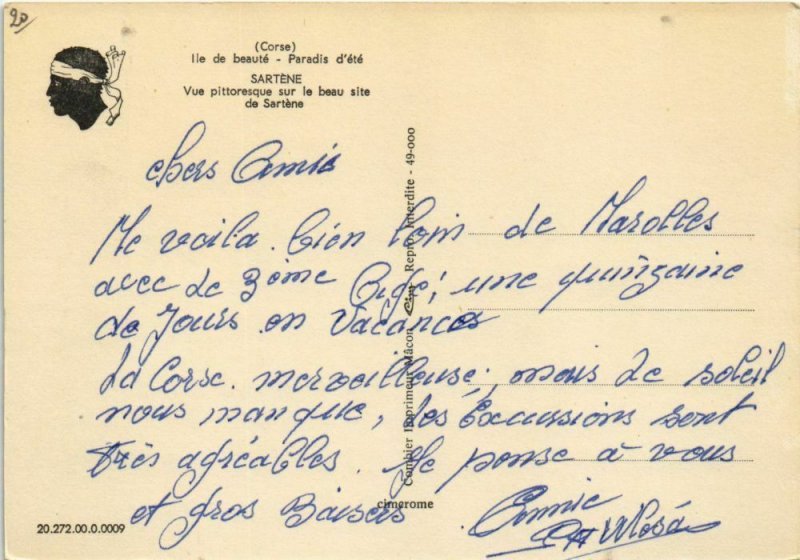 20
(Corse)
Ile de beauté - Paradis d'été
SARTÈNE
Vue pittoresque sur le beau site
de Sartène
chers Amis
Me voila. bien loin de Marolles
avec Le 3ème Age, une quinzaine
de Jours en Vacances
La Corse. merveilleuse, mais Le soleil
nous manque, les Excussions sont
très agréables. Je pense à vous
et gros Baisers
Annie
Combier Imprimeur Mâcon Cim Repro. Interdite - 49-000
cimcrome
20.272.00.0.0009